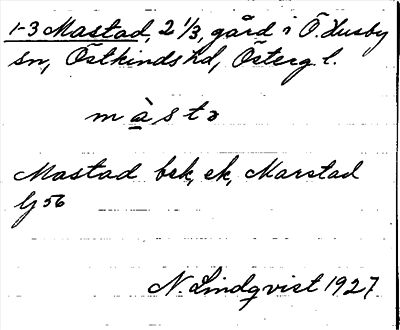 1-3 Mastad, 2 1/3, gård i Ö. Husby
sn, Östkinds hd, Österg. l.
màstə
Mastad bek, ek, Marstad
Ly 56
N. Lindqvist 1927